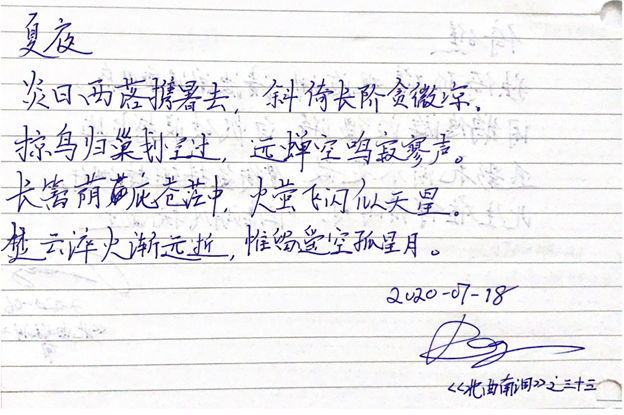 夏夜
炎日西落携暑去，斜倚长阶贪微凉.
掠鸟归巢划空过，远蝉空鸣寂寥声。
长蒿荫庇苍茫中，火萤飞闪似天星。
云淬火渐远逝，惟空孤星月。
2020-07-18
《北西南洄》之三十三